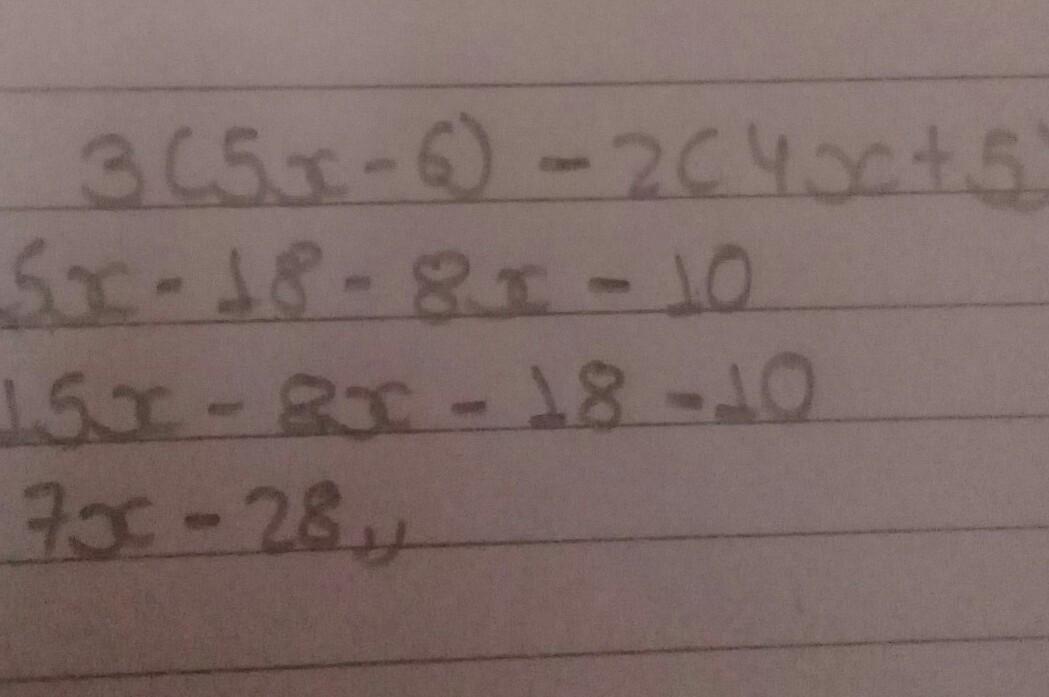 3(5x-6) - 2(4x+5)
5x - 18 - 8x - 10
15x - 8x - 18 - 10
7x - 28,,